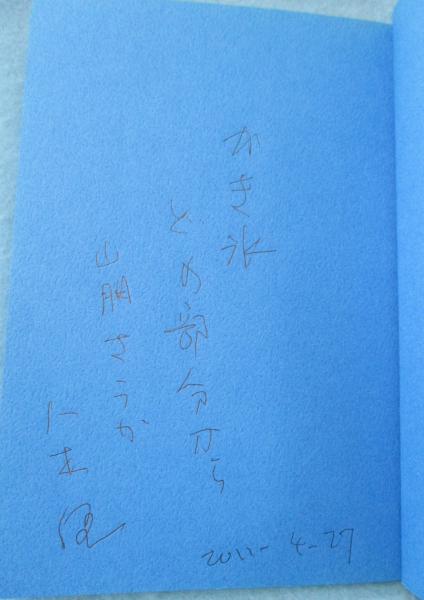 かき氷
どの部分から
山崩さうか
2011-4-27